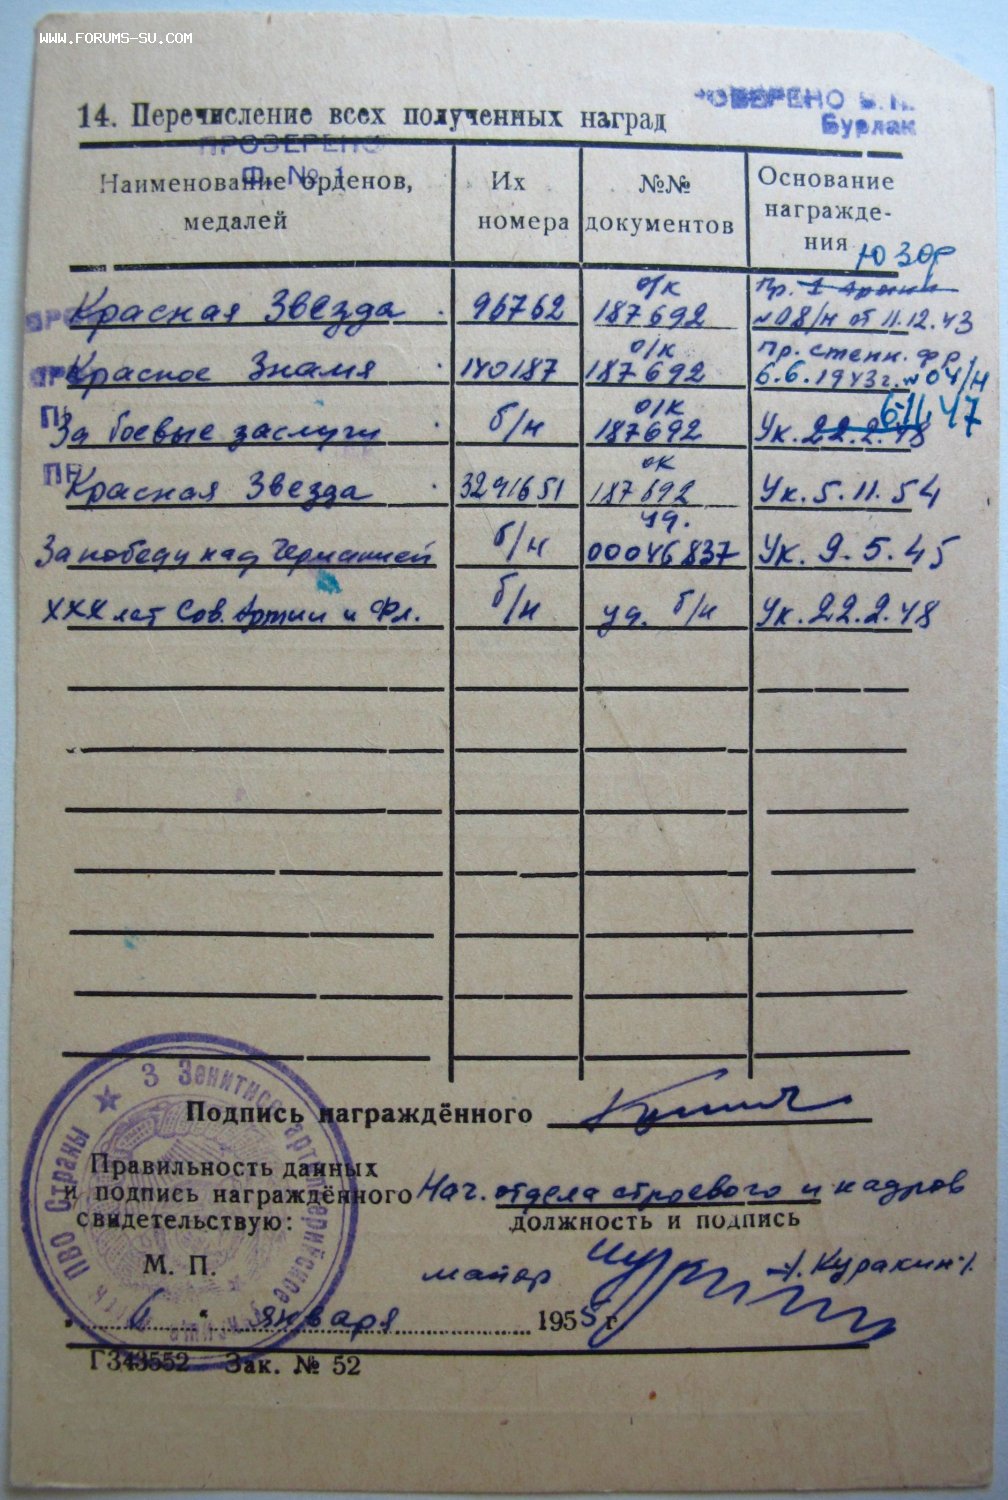 WWW.FORUMS-SU.COM
14. Перечисление всех полученных наград
ОВЕРЕНО
Бурлак
ПРОВЕРЕНО
Ф. № 1
Наименование орденов, медалей
Их номера
№№ документов
Основание награждения
ЮЗФ
Красная Звезда 96762 о/к 187692 Пр. 1 армии №08/н от 11.12.43
Красное Знамя 140187 о/к 187692 Пр. степн. фр. 6.6.1943г. №04/н
За боевые заслуги б/н о/к 187692 Ук. 22.2.48 6.11.47
Красная Звезда 3291651 ок 187692 Ук. 5.11.54
За победу над Германией б/н уд. 00046837 Ук. 9.5.45
XXX лет Сов. Армии и Фл. б/н уд. б/н Ук. 22.2.48
Подпись награждённого
Правильность данных
и подпись награждённого
свидетельствую:
Нач. отдела строевого и кадров
должность и подпись
М. П.
майор /Куракин/
января 1955 г.
Г343552 Зак. № 52
3 Зенитное артиллерийское
ПВО Страны